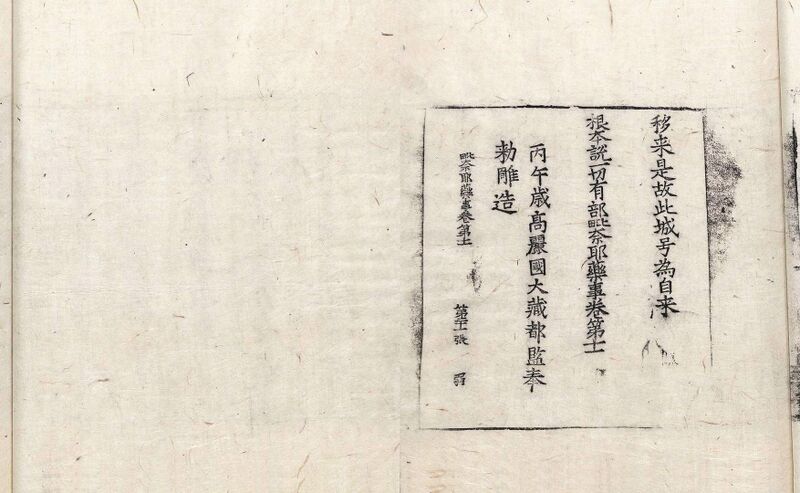 移来是故此城号為自来
根本說一切有部毗奈耶藥事卷第十一
丙午歳高麗國大藏都監奉
勅雕造
毗奈耶藥事卷第十一　第二十一張　弱